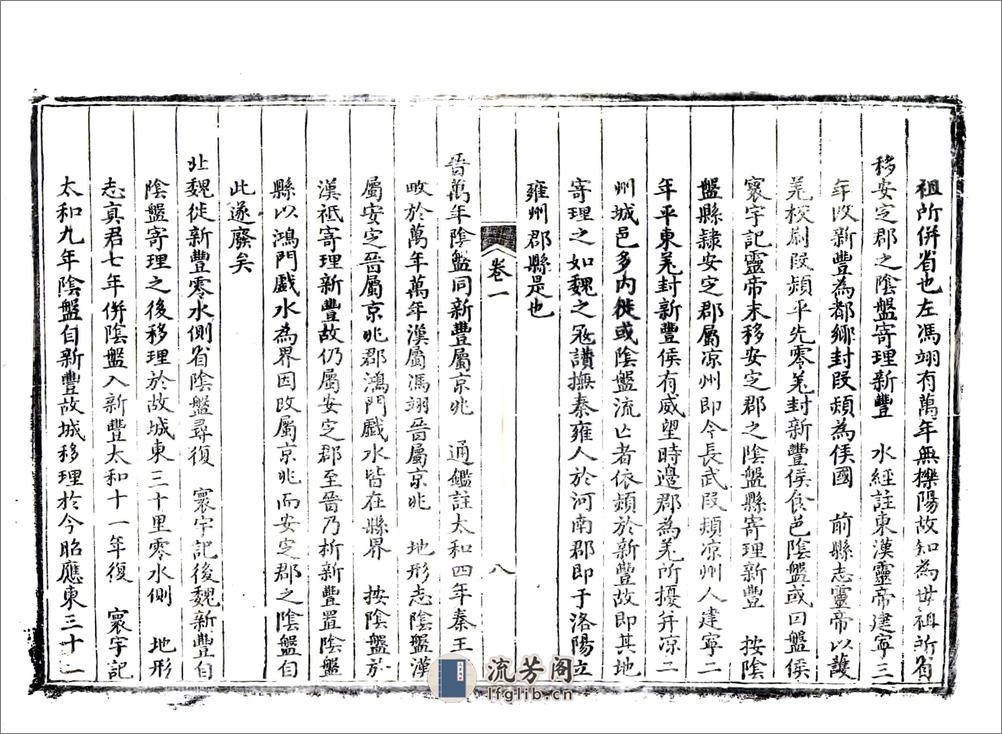 祖所併省也左馮翊有萬年無櫟陽故知為世祖所省
移安定郡之陰盤寄理新豐　水經註東漢靈帝建寧三
年改新豐為都鄉封段熲為侯國　前縣志靈帝以護
羌校尉段熲平先零羌封新豐侯食邑陰盤或曰盤侯
寰宇記靈帝末移安定郡之陰盤縣寄理新豐　按陰
盤縣隸安定郡屬凉州即今長武段熲凉州人建寧二
年平東羌封新豐侯有威望時邊郡為羌所擾并凉二
州城邑多內徙或陰盤流亡者依熲於新豐故即其地
寄理之如魏之寇讚撫秦雍人於河南郡即于洛陽立
雍州郡縣是也
卷一
八
晉萬年陰盤同新豐屬京兆　通鑑註太和四年秦王
畋於萬年萬年漢屬馮翊晉屬京兆　地形志陰盤漢
屬安定晉屬京兆郡鴻門戲水皆在縣界　按陰盤於
漢祗寄理新豐故仍屬安定郡至晉乃析新豐置陰盤
縣以鴻門戲水為界因改屬京兆而安定郡之陰盤自
此遂廢矣
北魏徙新豐零水側省陰盤尋復　寰宇記後魏新豐自
陰盤寄理之後移理於故城東三十里零水側　地形
志真君七年併陰盤入新豐太和十一年復　寰宇記
太和九年陰盤自新豐故城移理於今昭應東三十一
流芳阁
lfglib.cn